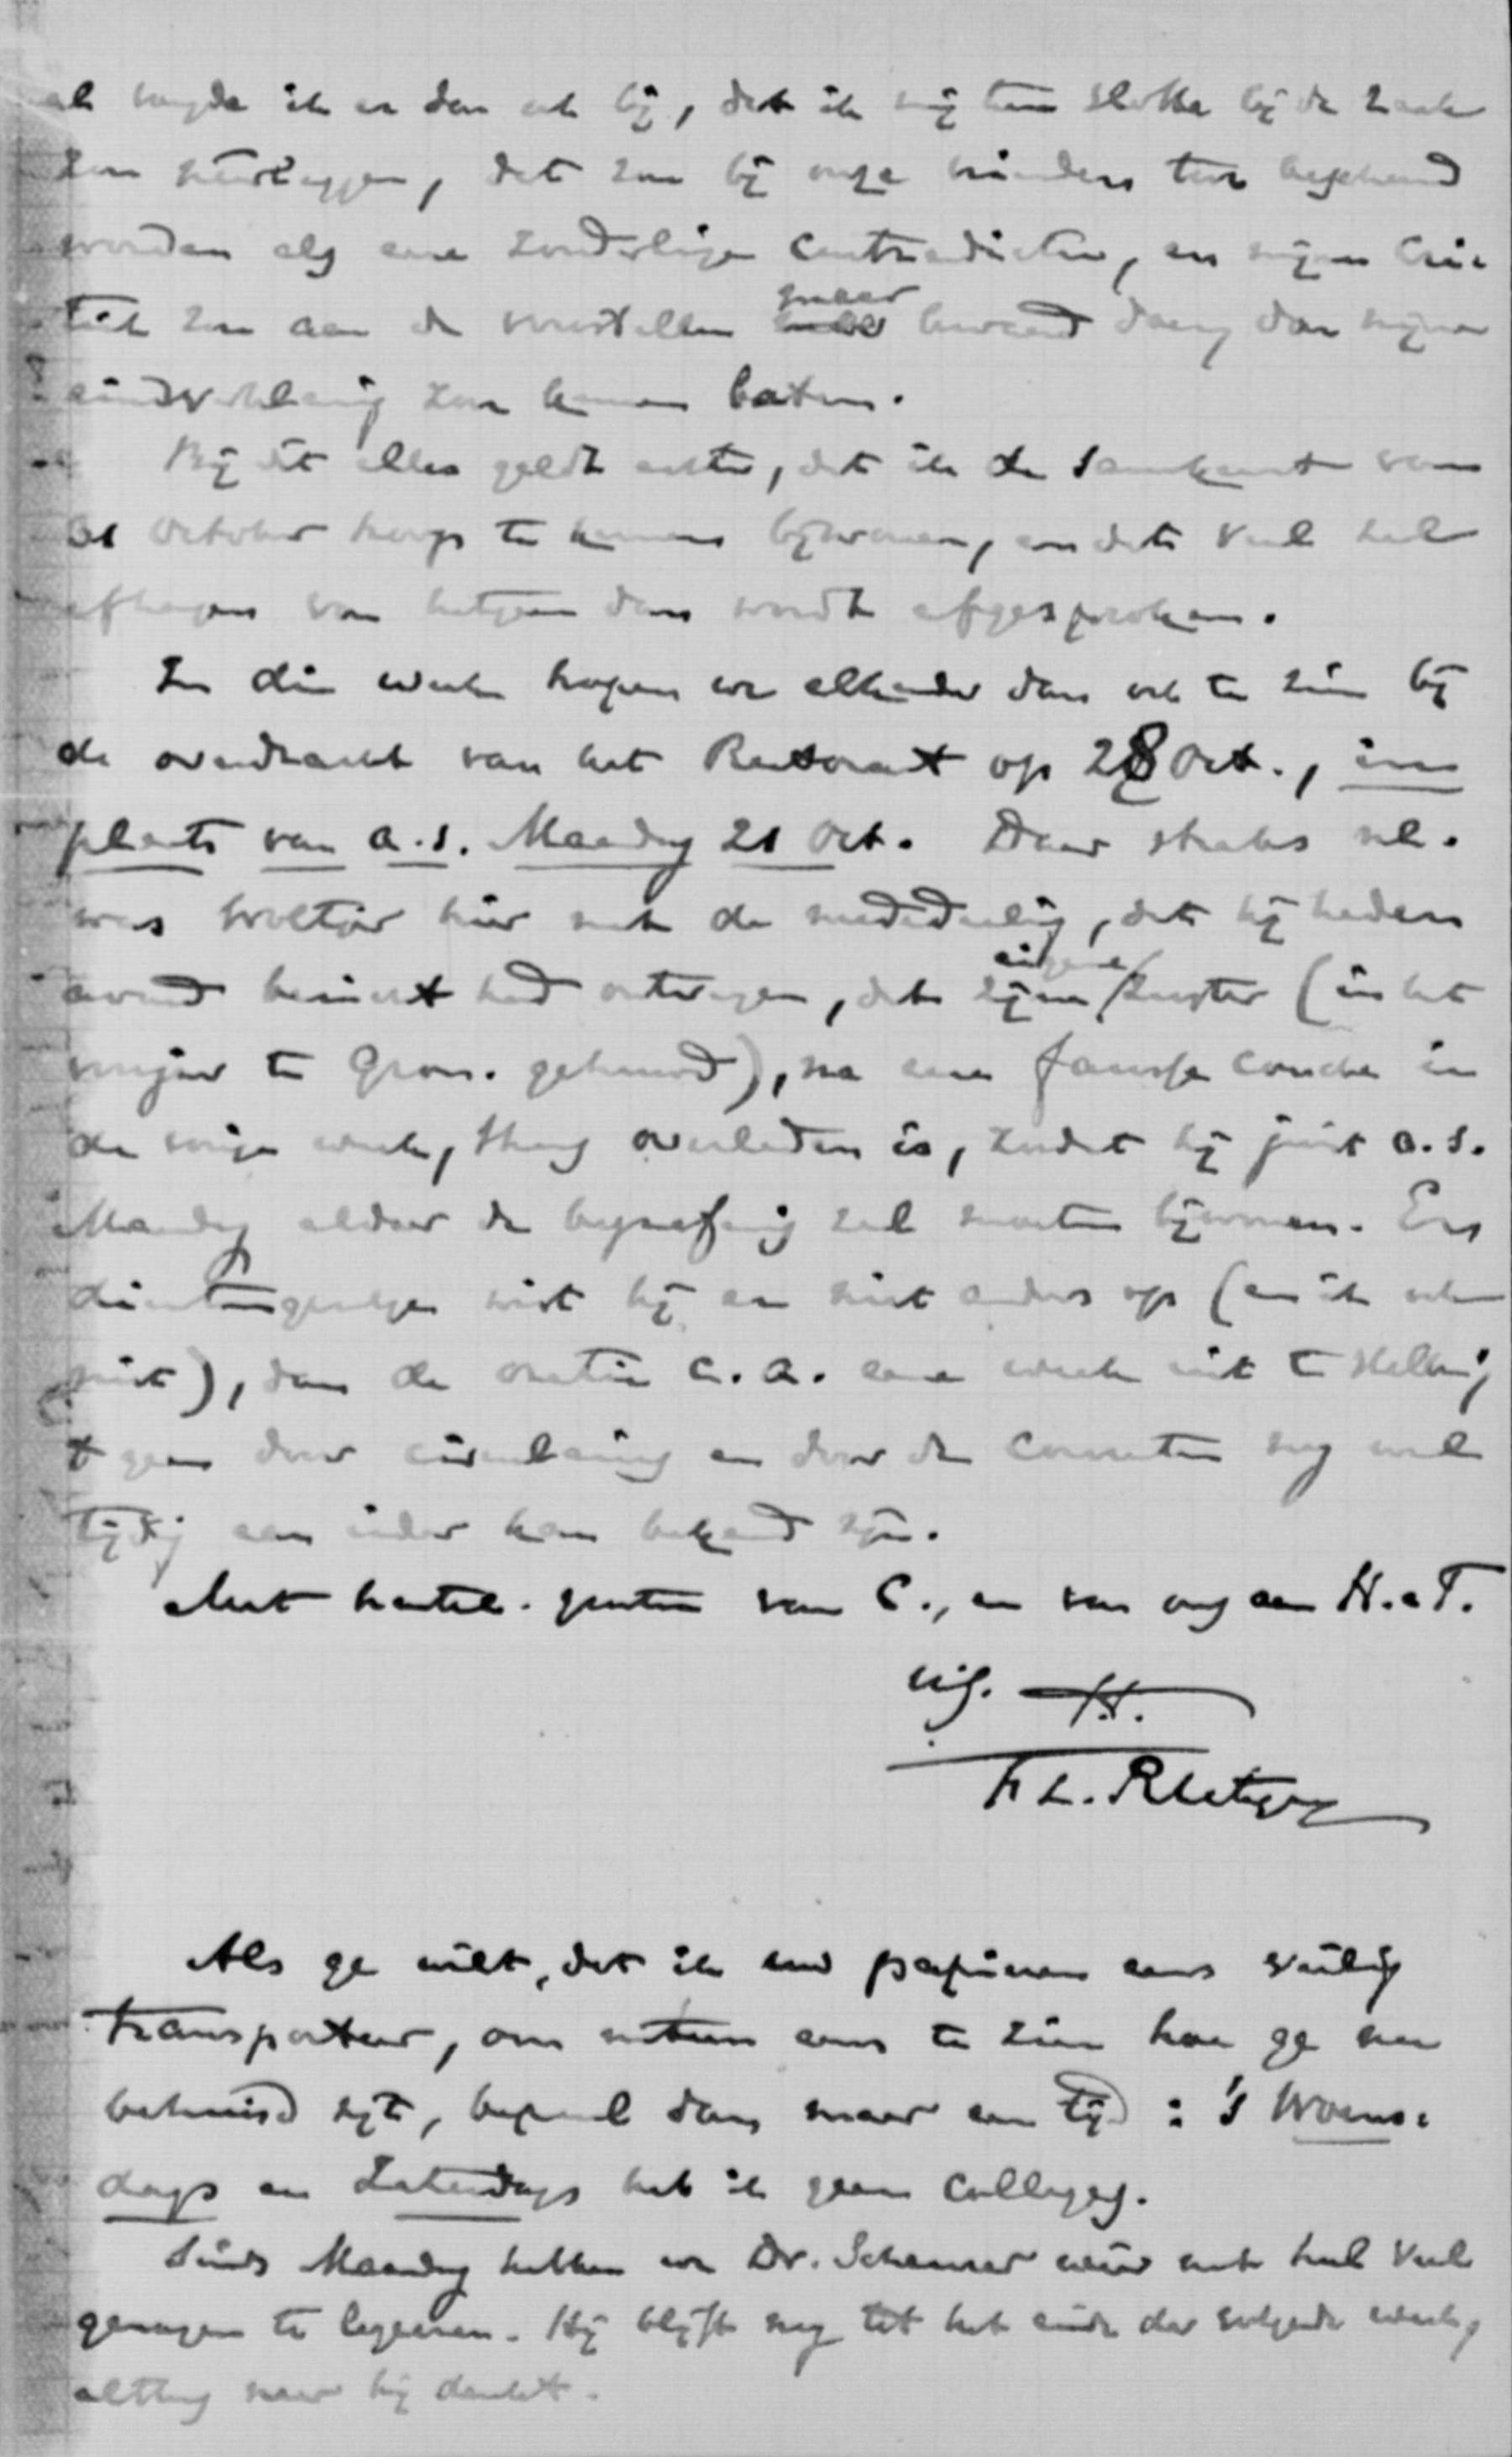 al voegde ik er dan ook bij, dat ik mij ten slotte bij de zaak
zou neerleggen, dat zou bij onze vrienden toch beschouwd
worden als eene zonderlinge contradictie, en mijne Cri-
tiek zou aan de voorstellen meer kwaad doen, dan mijne
eindverklaring zou kunnen baten.
Bij dit alles geldt echter, dat ik de samenkomst van
31 October hoop te kunnen bijwonen, en dat veel zal
afhangen van hetgeen dan wordt afgesproken.
In die week hopen we elkander dan ook te zien bij
de overdracht van het Rectoraat op 28 Oct., in
plaats van a.s. Maandag 21 Oct. Daar straks nl.
was Woltjer hier met de mededeeling, dat hij heden
avond bericht had ontvangen, dat zijne eigene zuster (in het
voorjaar te Gron. gehuwd), na eene fausse couche in
de vorige week, thans overleden is, zoodat hij juist a.s.
Maandag aldaar de begrafenis zal moeten bijwonen. En
dientengevolge wist hij er niet anders op (en ik ook
niet), dan de oratie c.a. eene week uit te stellen,
't geen door circulaire en door de Couranten nog wel
tijdig aan ieder kan bekend zijn.
Met hartel. groeten van C., en van ons aan H. e T.
F. L. Rutgers
Als ge wilt, dat ik uw papieren eens veilig
transporteer, om meteen eens te zien hoe ge nu
behuisd zijt, bepaal dan maar een tijd: 's Woens-
dags en Zaterdags heb ik geen Colleges.
Sinds Maandag hebben we Dr. Scheurer weer met heel veel
genoegen te logeeren. Hij blijft nog tot het einde der volgende week,
althans naar hij denkt.